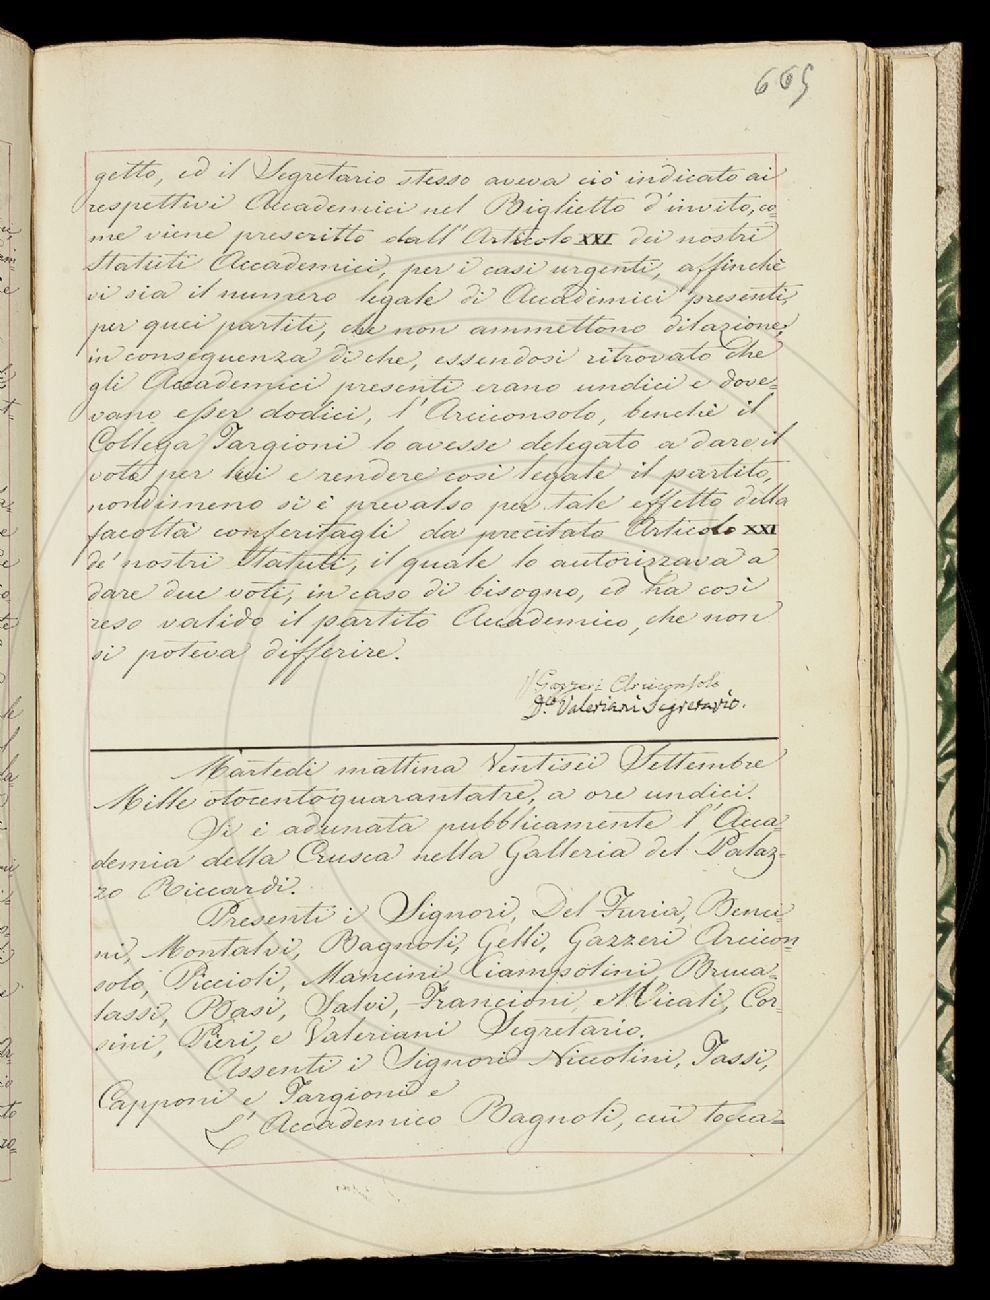 665
getto, ed il Segretario stesso aveva ciò indicato ai
respettivi Accademici nel Biglietto d'invito, co=
me viene prescritto dall'Articolo XXI dei nostri
Statuti Accademici, per i casi urgenti, affinchè
vi sia il numero legale di Accademici presenti,
per quei partiti, che non ammettono dilazione;
in conseguenza di che, essendosi ritrovato che
gli Accademici presenti erano undici e dove=
vano esser dodici, l'Arciconsolo, benchè il
Collega Targioni lo avesse delegato a dare il
voto per lui e rendere così legale il partito,
nondimeno si è prevalso per tale effetto della
facoltà conferitagli da precitato Articolo XXI
de' nostri Statuti, il quale lo autorizzava a
dare due voti, in caso di bisogno, ed ha così
reso valido il partito Accademico, che non
si poteva differire.
Gazzeri Arciconsolo
Valeriani Segretario.
Martedì mattina Ventisei Settembre
Mille otocentoquarantatre, a ore undici.
Si è adunata pubblicamente l'Acca=
demia della Crusca nella Galleria del Palaz=
zo Riccardi.
Presenti i Signori, Del Furia, Benci=
ni, Montalvi, Bagnoli, Gelli, Gazzeri Arcicon=
solo, Piccioli, Mancini Ciampolini, Bruca=
lassi, Basi, Salvi, Francioni, e Micali, Cor=
sini, Pieri, e Valeriani Segretario.
Assenti i Signori Niccolini, Tassi,
Capponi e Targioni e
L'Accademico Bagnoli, cui tocca=